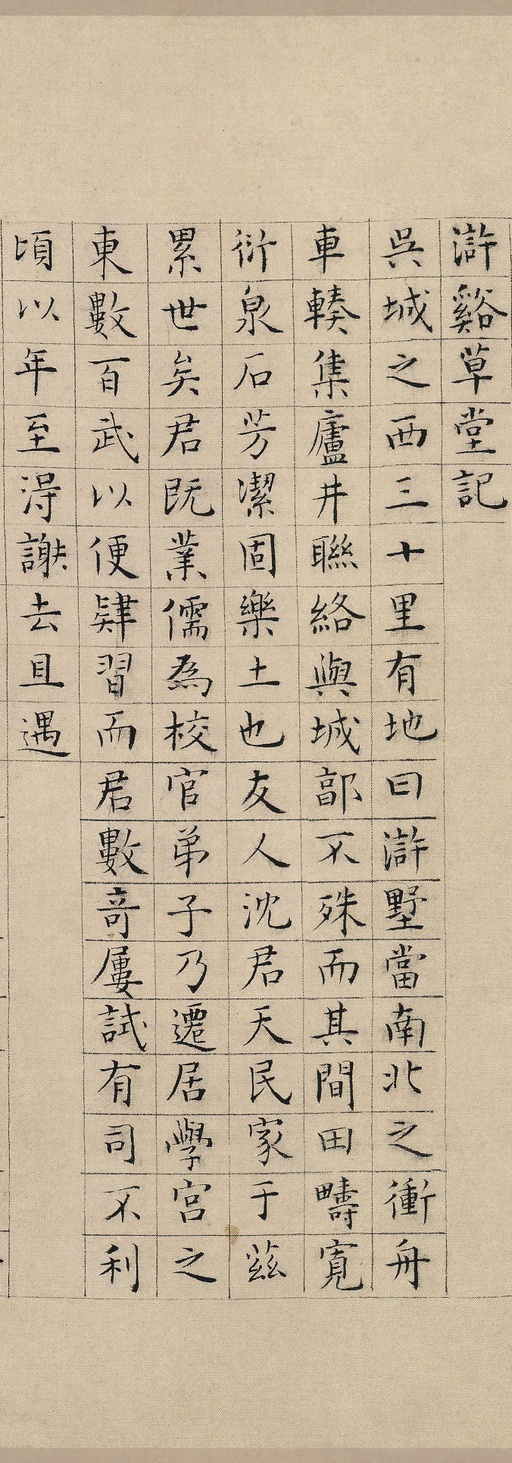 滸谿草堂記
吳城之西三十里有地曰滸墅當南北之衝舟
車輳集廬井聯絡與城郭不殊而其間田疇寬
衍泉石芳潔固樂土也友人沈君天民家于茲
累世矣君既業儒為校官弟子乃遷居學宮之
東數百武以便肄習而君數奇屢試有司不利
頃以年至淂謝去且遇